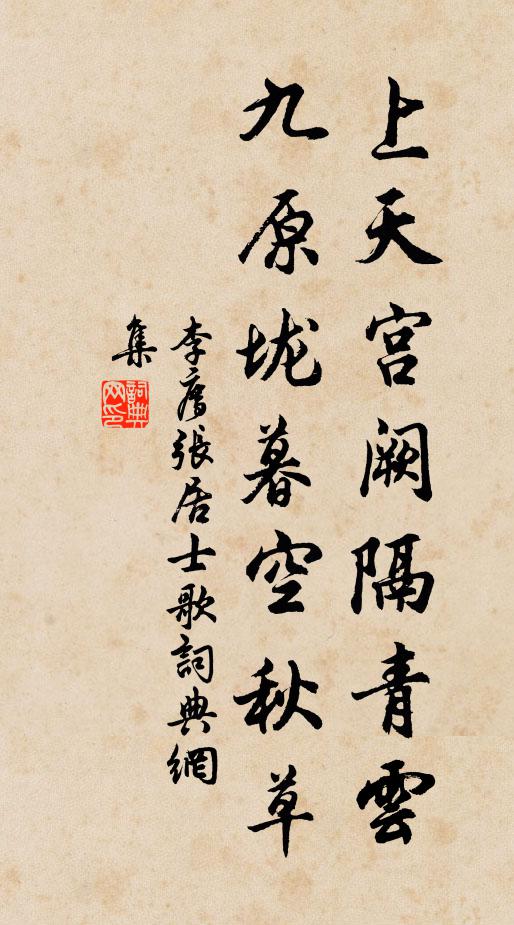 上天宫阙隔青雲
九原垅暮空秋草
李廌張居士歌詞典網
集
詞典
网印